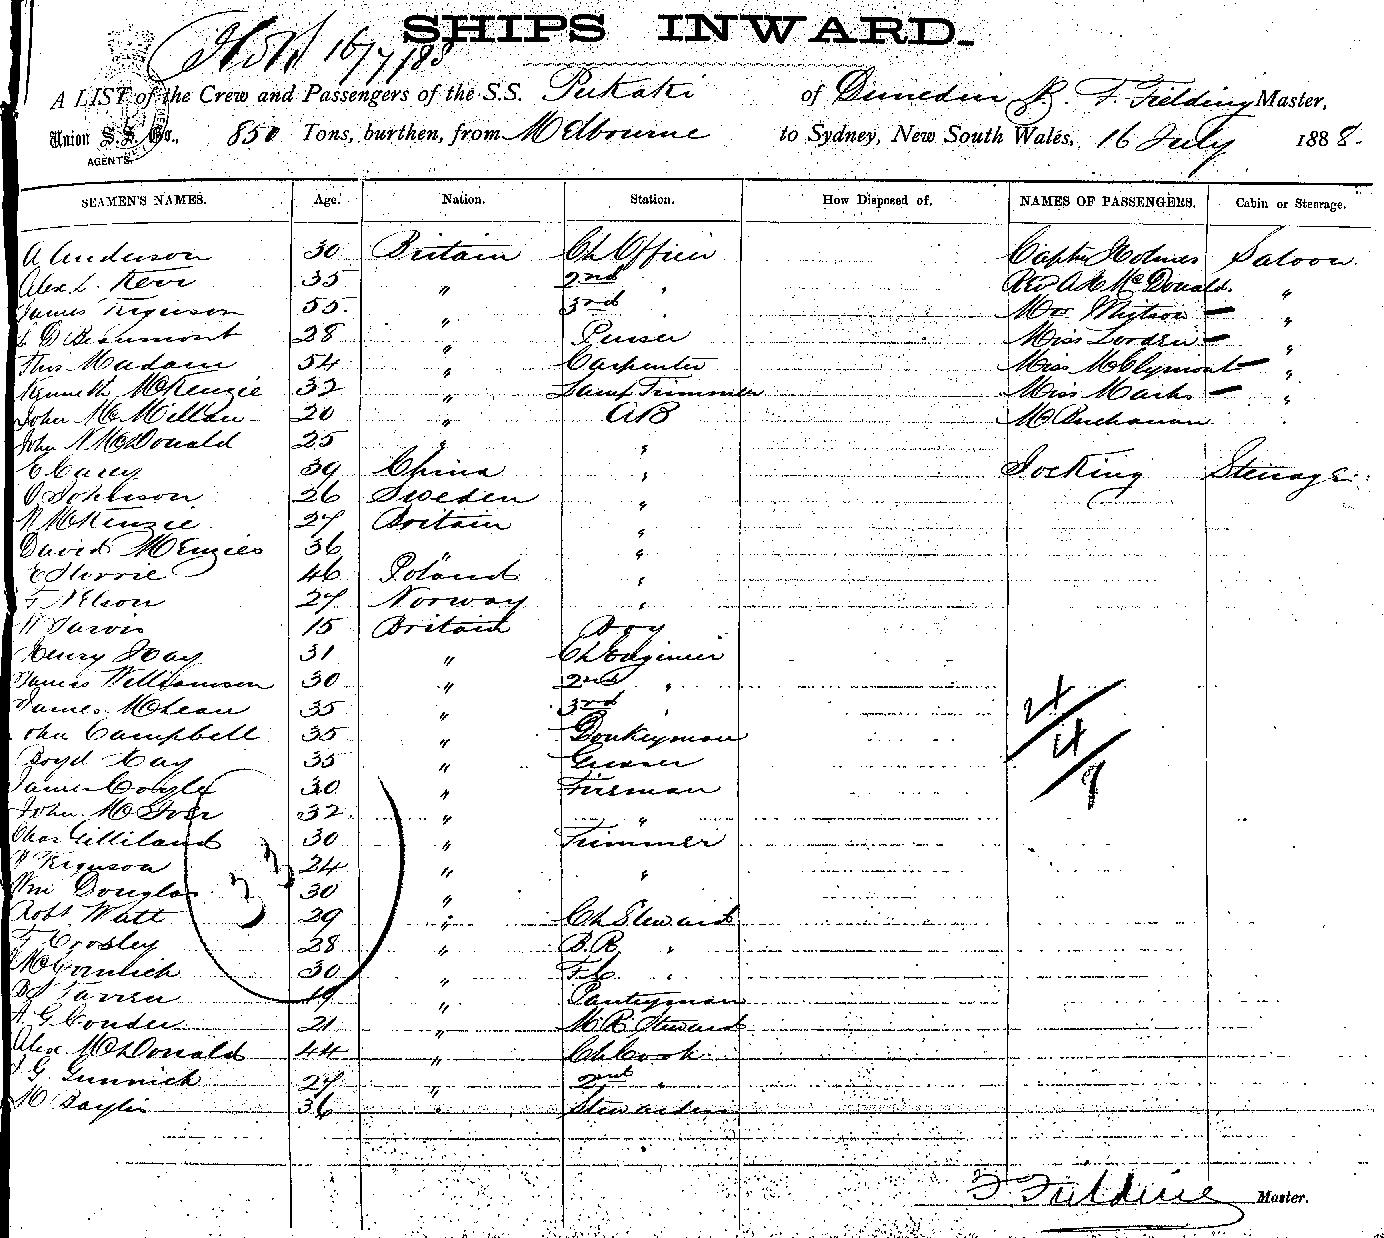 SHIPS INWARD.
16/7/88
A LIST of the Crew and Passengers of the S.S. Pukaki of Dunedin F. Fielding Master,
Union S.S. Co., 850 Tons, burthen, from Melbourne to Sydney, New South Wales, 16 July 1888.
AGENTS.
SEAMEN'S NAMES. Age. Nation. Station. How Disposed of. NAMES OF PASSENGERS. Cabin or Steerage.
A Anderson 30 Britain Ch Officer Captn Holmes Saloon
Alex L. Kerr 35 " 2nd " Rev A McDonald "
James Ferguson 55 " 3rd " Mrs "
D Beaumont 28 " Purser Miss "
Thos Madam 54 " Carpenter Miss McClymont "
Kenneth McKenzie 32 " Lamp Trimmer Miss Marks "
John McMillan 20 " AB Mr Buchanan
John N McDonald 25 " "
C Carey 39 China " Steerage
O Johnson 26 Sweden "
N McKenzie 27 Britain "
David Menzies 36 " "
C 46 Poland "
F Nelson 27 Norway "
W Jarvis 15 Britain Boy
Henry Hay 31 " Ch Engineer
James Williamson 30 " 2nd "
James McLean 35 " 3rd "
John Campbell 35 " Donkeyman
Boyd Kay 35 " Greaser
James Coyle 30 " Fireman
John McIver 32 " "
Chas Gilliland 30 " Trimmer
Ferguson 24 " "
Wm Douglas 30 "
Robt Watt 29 " Ch Steward
Crosley 28 " B.R. "
McCormick 30 " F.C. "
19 " Pantryman
G Conder 21 " M.R. Steward
Alex McDonald 44 " Ch Cook
G 27 " 2nd "
M 36 " Stewardess
33
24/4/9
F Fielding Master.